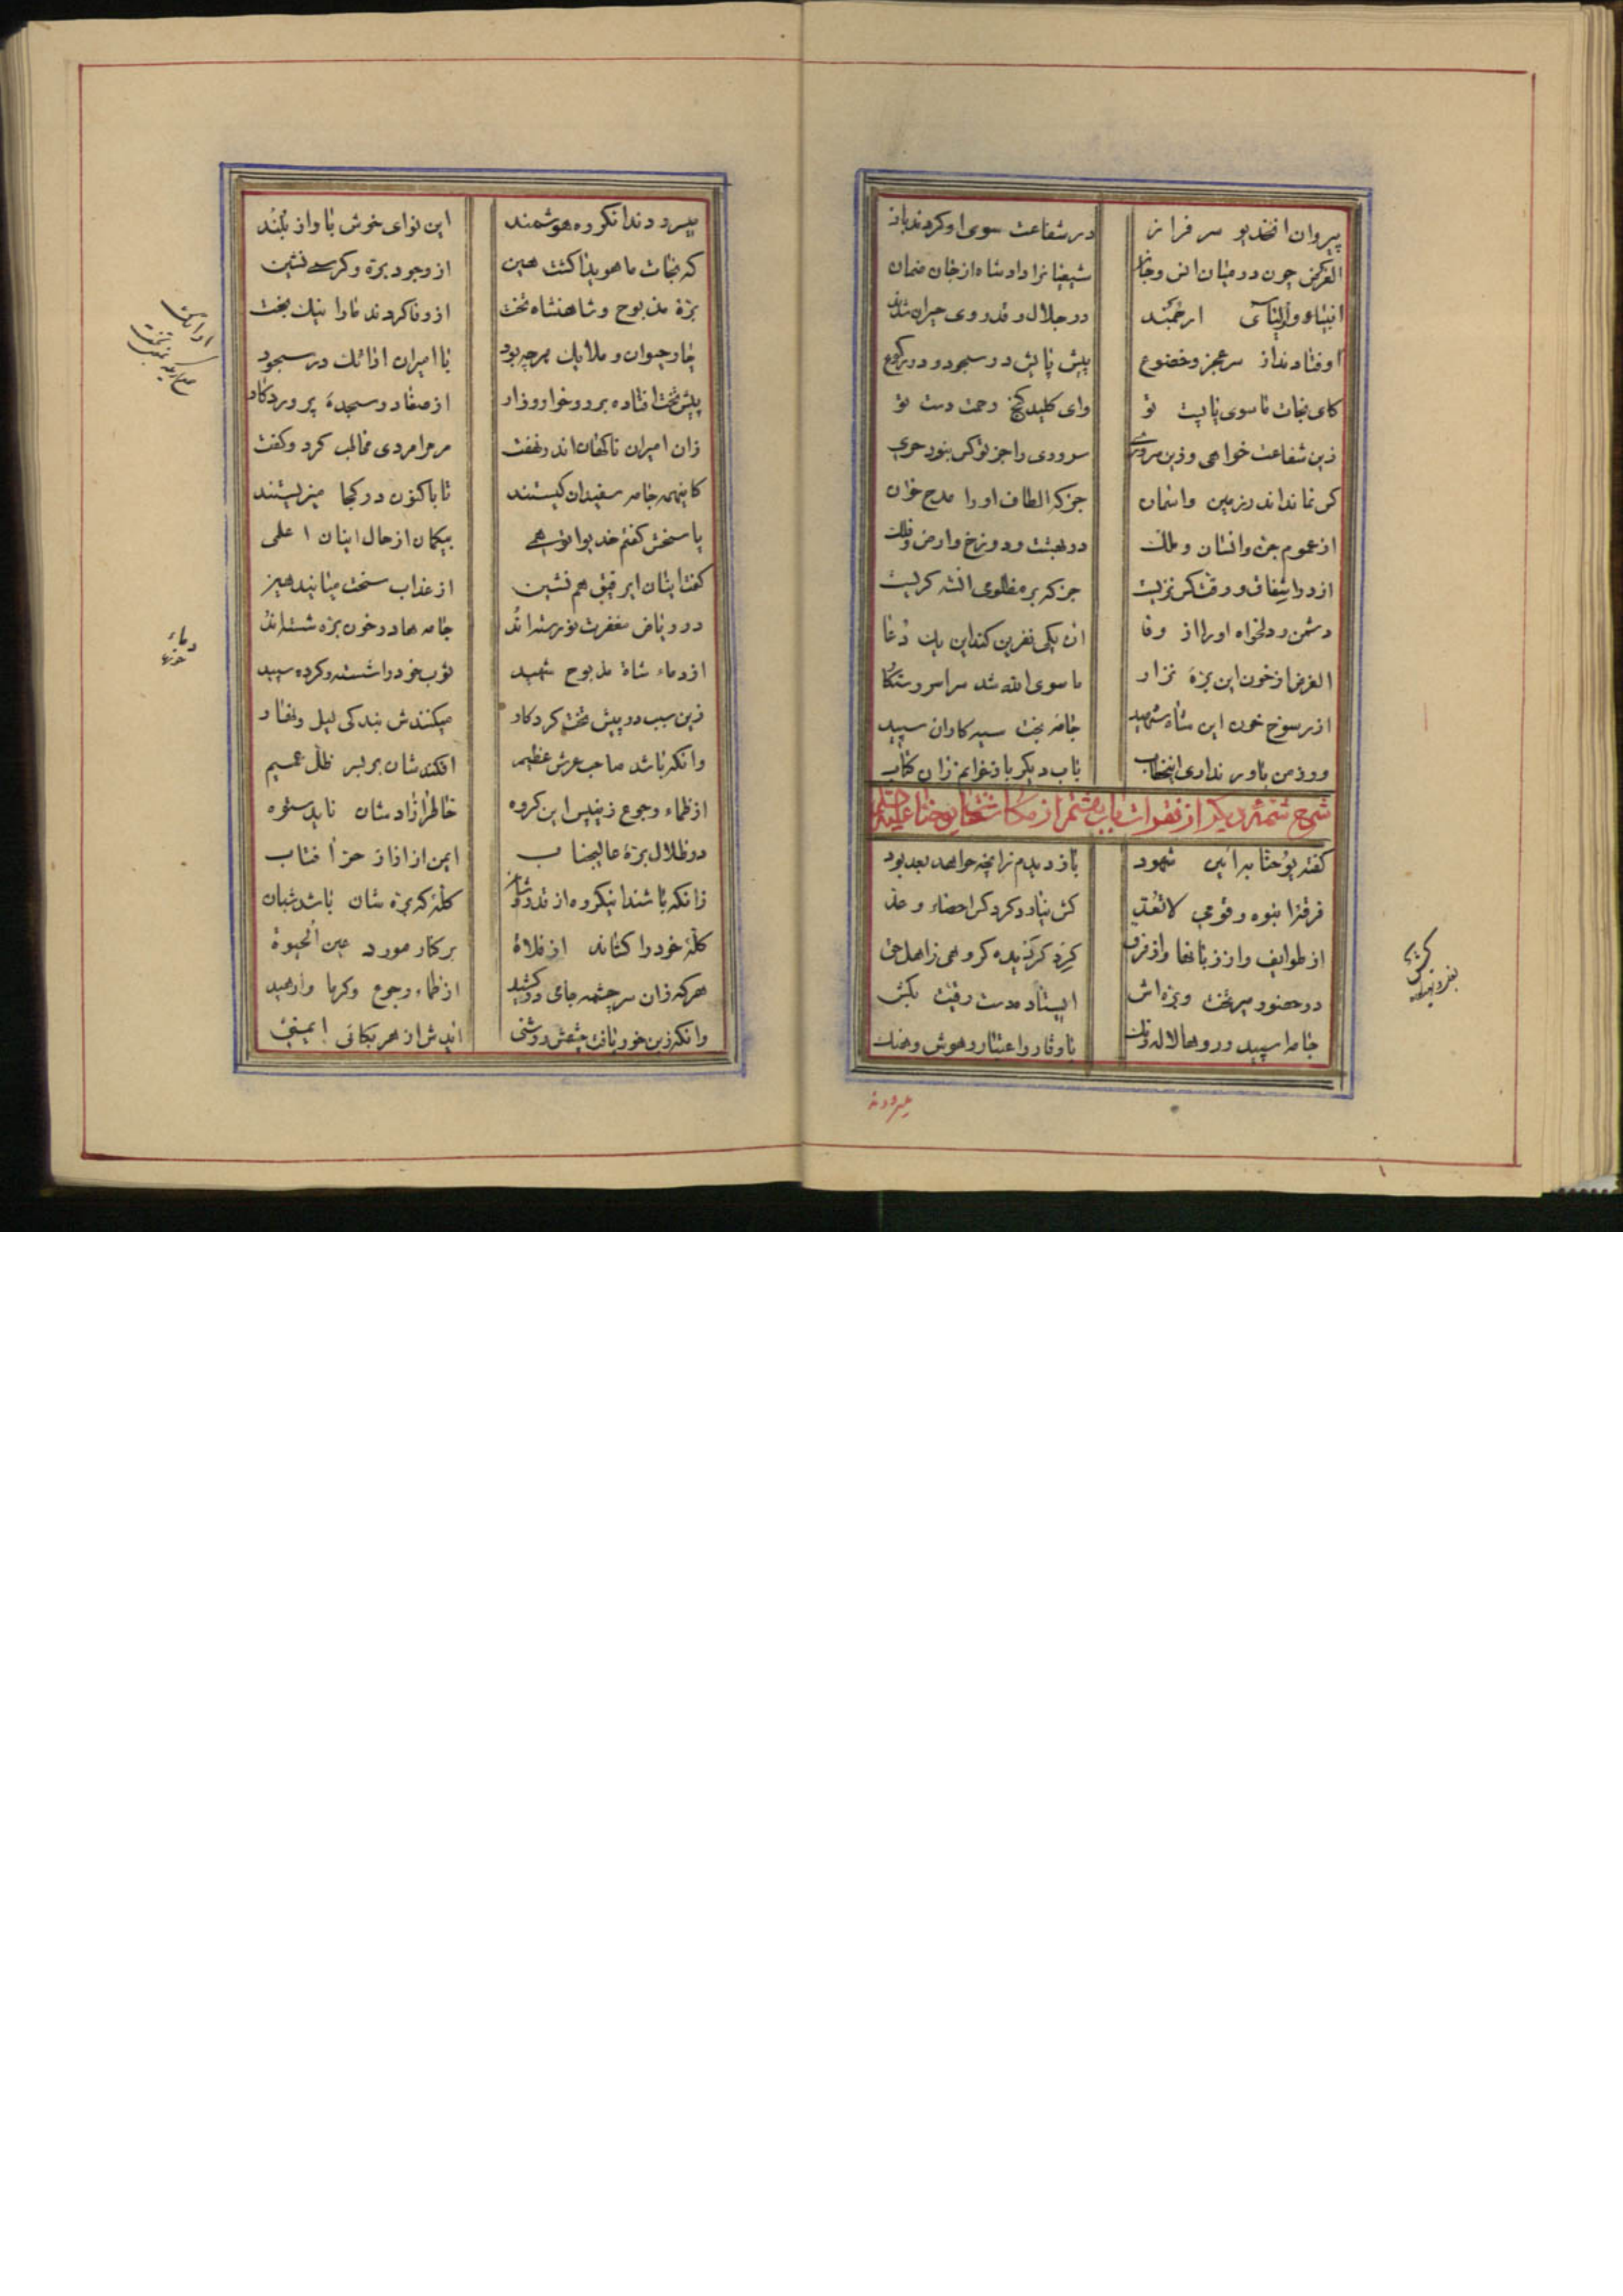 پیروان انخدیو سرفراز در شفاعت سوی او کردند باز
الغرض چون در میان انس و جان شیعیانرا داد شاه از جان ضمان
انبیاء و اولیای ارجمند در جلال و قدر وی حیران شدند
اوفتادند از سر عجز و خضوع پیش پایش در سجود و در رکوع
کای نجات ماسوی پابست تو وای کلید گنج رحمت دست تو
زین شفاعت خواهی و زین سروری سروری را جز تو کس نبود حری
کس نماند اندر زمین و اسمان جز که الطاف او را مدح خوان
از عموم جن و انسان و ملک در بهشت و دوزخ و ارض و فلک
از در اشفاق و رقت کس نزیست جز که بر مظلومی انشه گریست
دشمن و دلخواه او را از وفا ان یکی نفرین کند این یک دعا
الغرض از خون این بره نزار ماسوی الله شد سراسر رستگار
از رسوخ خون این شاه شهید جامه بخت سیه کاران سپید
ور ز من باور نداری اینخطاب باب دیگر باز خوانم زان کتاب
شرح شمه دیگر از فقرات باب هفتم از مکاشفات یوحنا علیه السلام
گفت یوحنا به ائین شهود باز دیدم زانچه خواهد بعد بود
فرقه انبوه و قومی لاتعد کش نیارد کرد کس احصاء و عد
از طوایف و از زبانها و از فرق کزد گرگزیده گروهی زاهل حق
در حضور میر تخت و بره اش ایستاده مست رقت بکش
جامها سپید و روها لاله رنک با وقار و اعتبار و هوش و هنک
میسرودند
میسرودند انگروه هوشمند این نوای خوش باواز بلند
که نجات ما هویدا گشت هین از وجود بره و کرسی نشین
بره مذبوح و شاهنشاه تخت از وفا کردند ما را نیک بخت
چار حیوان و ملایک هر چه بود با امیران ارائک در سجود
پیش تخت افتاده بر رو خوار و زار از صغار در سجده پروردگار
زان امیران ناگهان اندر نهفت مر مرا مردی مخاطب کرد و گفت
کاینهمه جامه سفیدان کیستند تا باکنون در کجا میزیستند
پاسخش گفتم خدیوا توهمی بیگمان از حال اینان اعلمی
گفت ایشان ای رفیق هم نشین از عذاب سخت میایند هین
در ریاض مغفرت نو رسته اند جامه ها در خون بره شسته اند
از دماء شاه مذبوح شهید ثوب خود را شسته و کرده سپید
زین سبب در پیش تخت کردگار میکنندش بندگی لیل و نهار
وانکه باشد صاحب عرش عظیم افکندشان بر بسر ظل عمیم
از ظماء و جوع زین پس این گروه خاطر ازادشان ناید ستوه
در ظلال بره عالیجناب ایمن از ازار حر افتاب
زانکه باشند اینگروه از قدر و شان گله که بره شان باشد شبان
گله خود را کشاند از فلاة بر کنار مورد عین الحیوة
هر که زان سرچشمه جامی در کشید از ظماء و جوع و گرما وارهید
وانکه زین خور یافت چشمش روشنی ایدش از هر بکائی ایمنی
ارائک
تخت
دماء
خونها